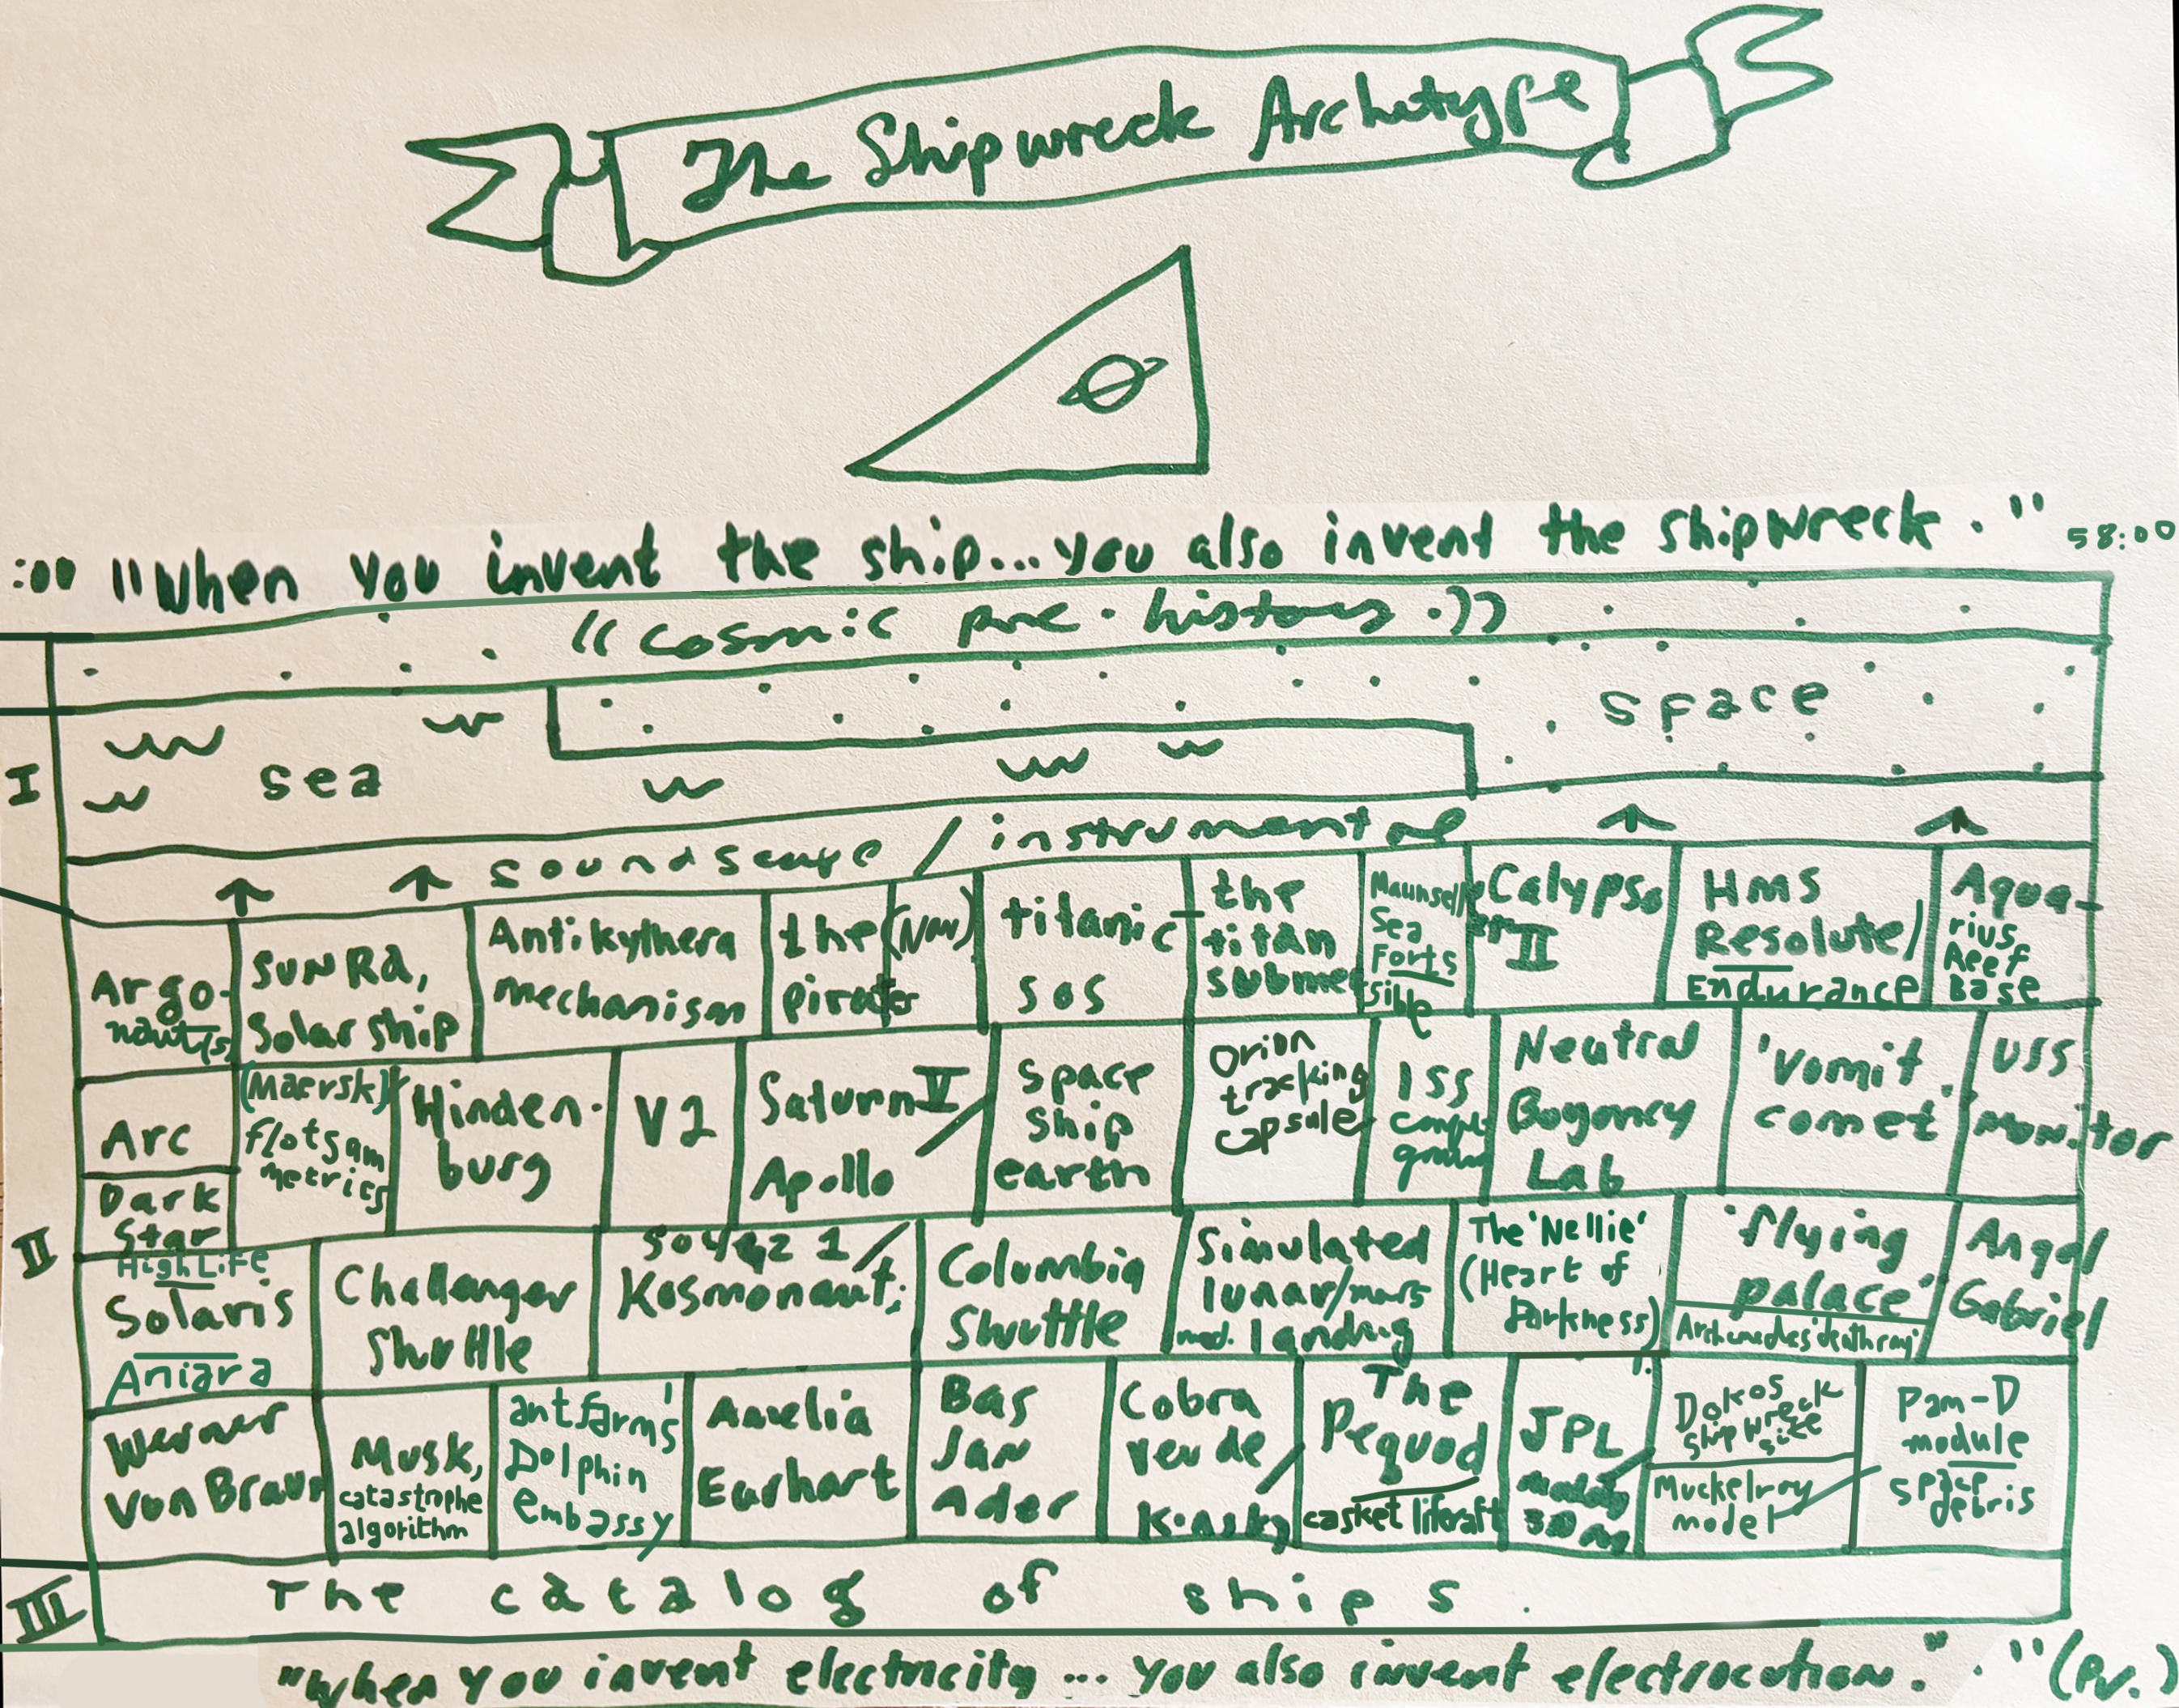 The Shipwreck Archetype
:00 "When you invent the ship...you also invent the shipwreck." 58:00
((cosmic pre-history.))
space
I
sea
soundscape / instrumental
Argo-
naut(s)
SUN Ra,
Solar ship
Antikythera
mechanism
the
pirates
(Nav)
titanic
SOS
the
titan
submer
sible
Maunsell
Sea
Forts
Calypso
II
HMS
Resolute/
Endurance
Aqua-
rius
Reef
Base
II
Arc
Dark
Star
(Maersk)
flotsam
metrics
Hinden-
burg
V2
Saturn V /
Apollo
space
ship
earth
Orion
tracking
capsule
ISS
Neutral
Buyoncy
Lab
'Vomit
comet'
USS
Monitor
High Life
Solaris
Aniara
Challenger
Shuttle
Soyuz 1 /
Kosmonaut;
Columbia
Shuttle
Simulated
lunar/mars
med. landing
The 'Nellie'
(Heart of
Darkness)
'flying
palace'
Archimedes' death ray
Angel
Gabriel
Werner
von Braun
Musk,
catastrophe
algorithm
antfarm's
Dolphin
embassy
Amelia
Earhart
Bas
Jan
Ader
Cobra
verde /
Kinsky
The
Pequod
casket liferaft
JPL
Dokos
shipwreck
site
Muckelroy
model
Pam-D
module
space
debris
III
The catalog of ships.
"When you invent electricity... you also invent electrocution." . "(PV.)